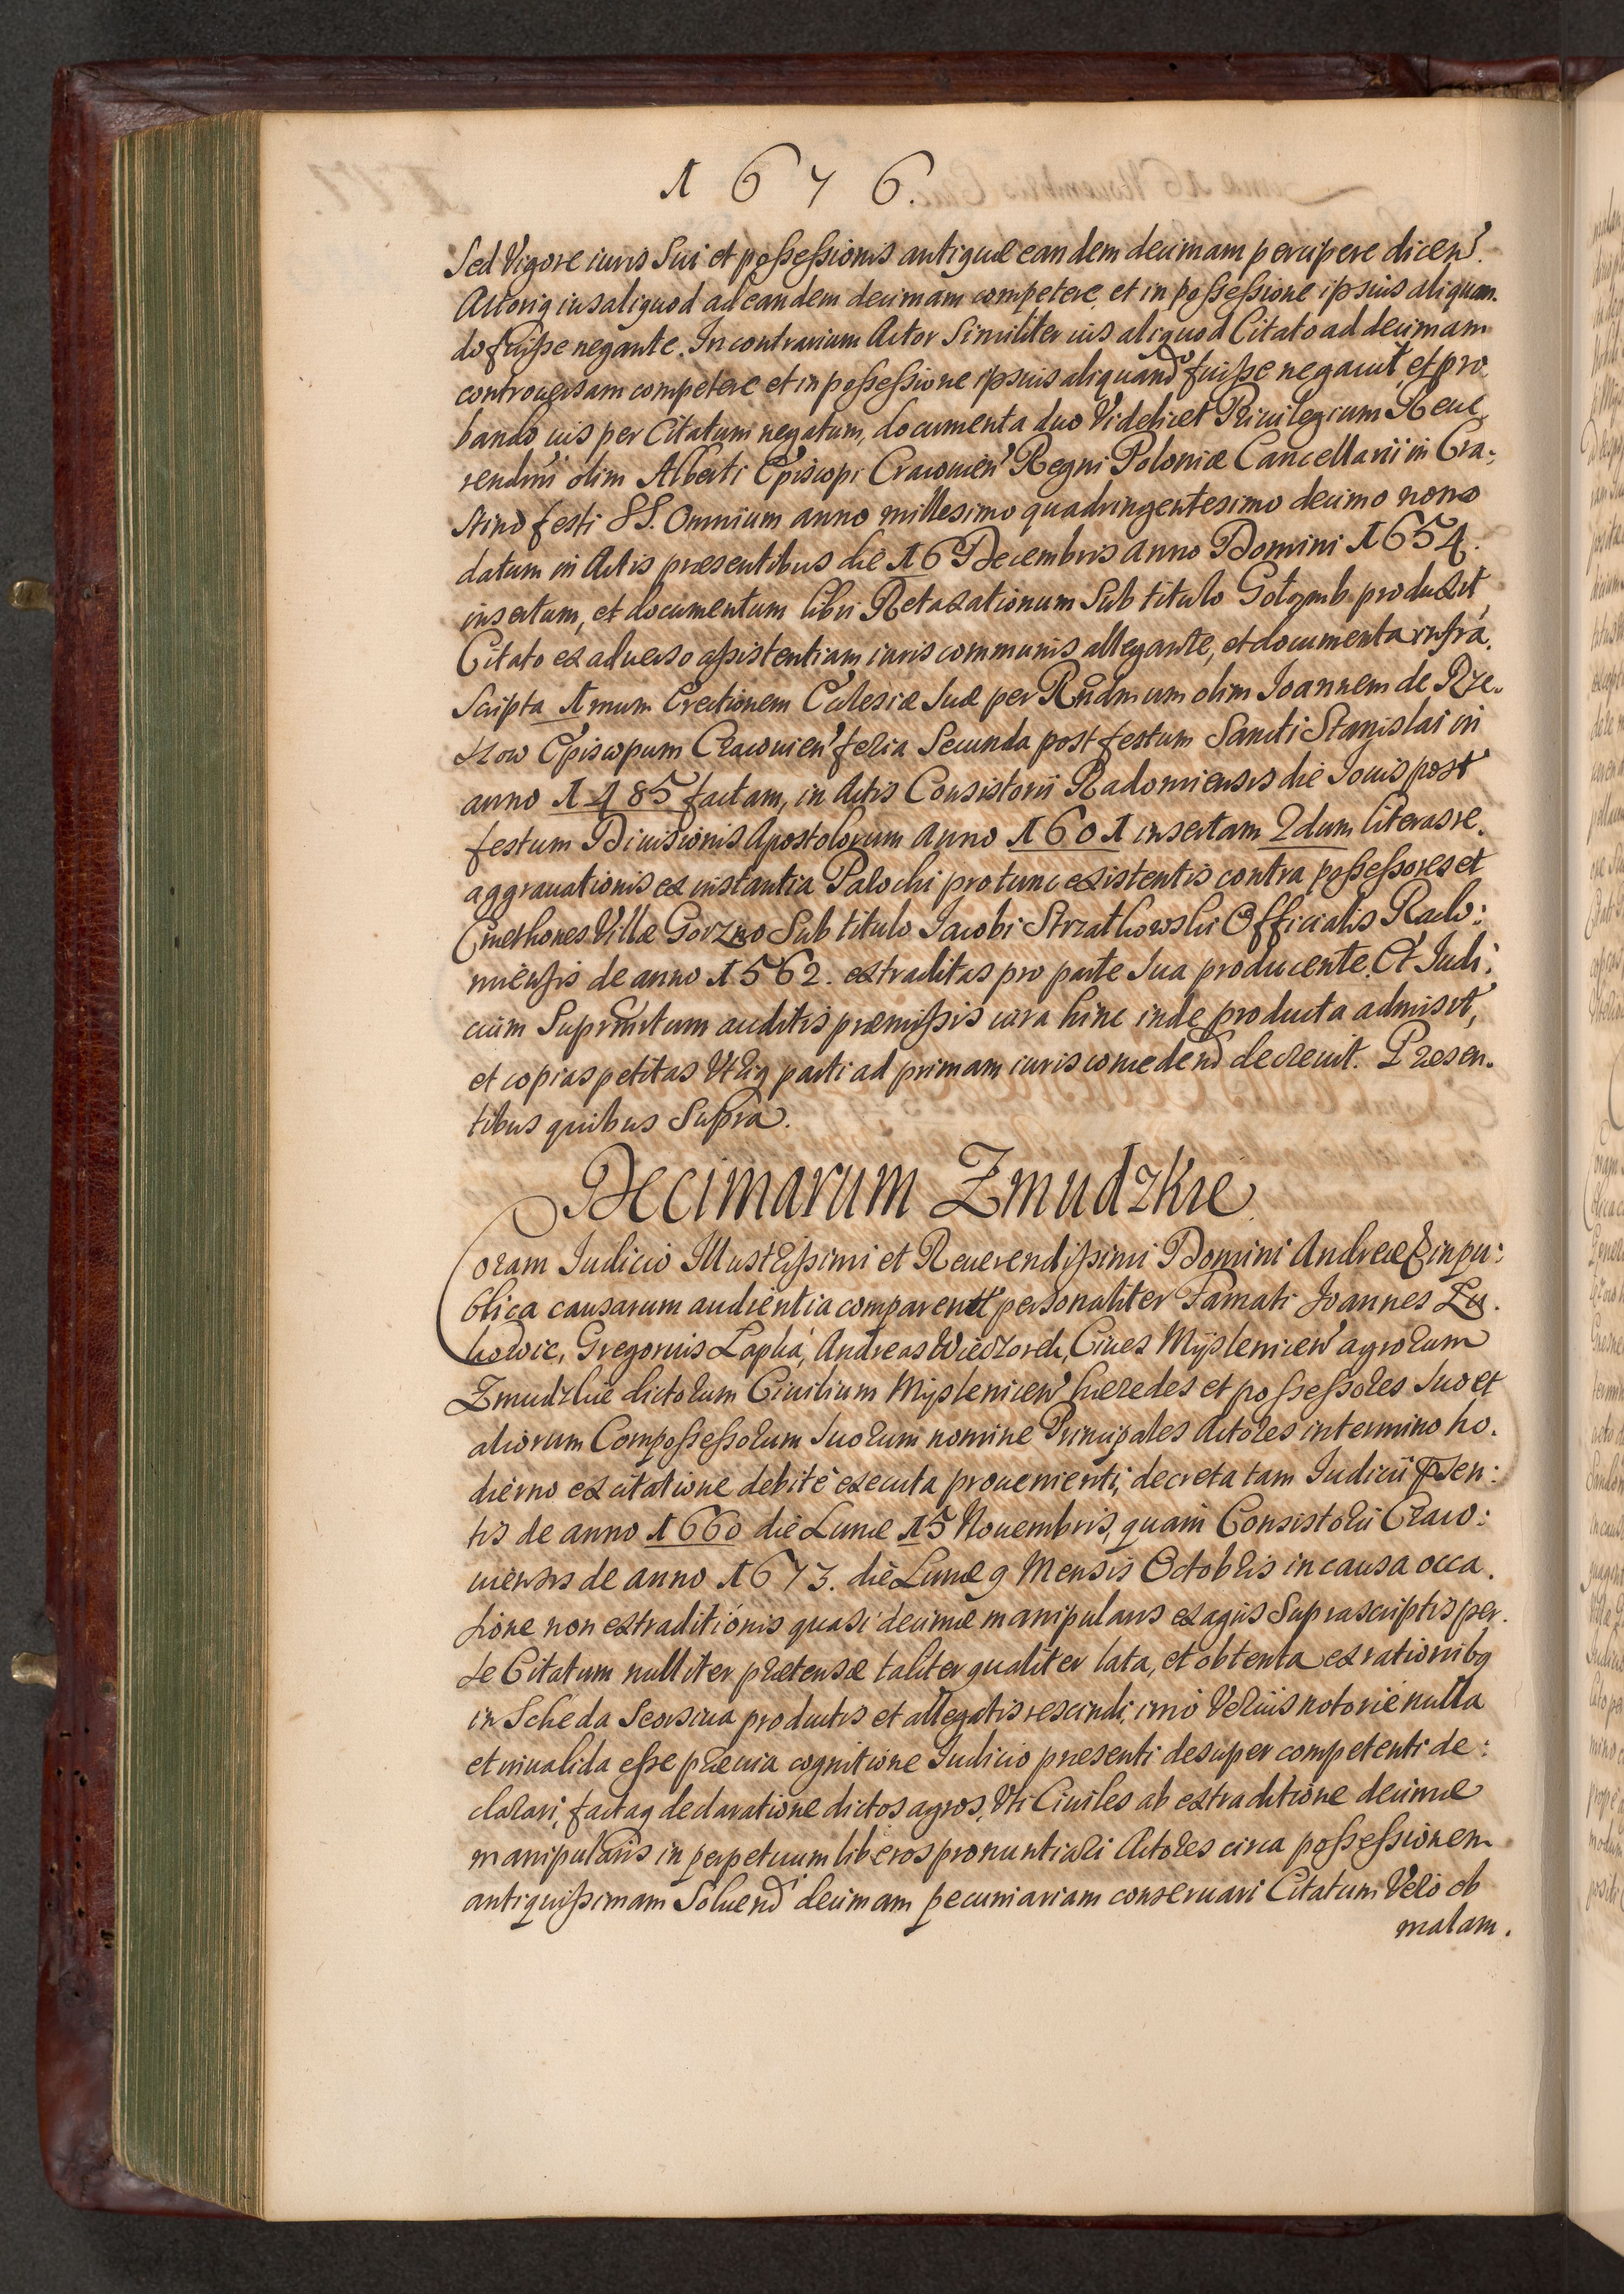 1676.
Sed Vigore iuris Sui et possessionis antiquæ eandem decimam percipere dicen.
Actoriq ius aliquod ad eandem decimam competere et in possessione ipsius aliquan.
do fuisse negante. In contrarium Actor Similiter ius aliquod Citato ad decimam
controversam competere et in possessione ipsius aliquando fuisse negavit, et pro
bando ius per Citatum negatum, documenta duo Videlicet Privilegium Reve,
rendmi olim Alberti Episcopi Cracovien Regni Poloniæ Cancellarii in Cra:
stino festi SS. Omnium anno millesimo quadringentesimo decimo nono
datum in Actis præsentibus die 16 Decembris Anno Domini 1654.
insertum, et documentum libri Retaxationum Sub titulo Gołąmb produxit,
Citato ex adverso assistentiam iuris communis allegante, et documenta infra.
Scripta 1mum Erectionem Ecclesiæ Suæ per Rndmum olim Joannem de Rze.
szow Episcopum Cracovien feria Secunda post festum Sancti Stanislai in
anno 1485 factam, in Actis Consistorii Radomiensis die Jovis post
festum Divisionis Apostolorum Anno 1601 insertam 2dum literas re.
aggravationis ex instantia Parochi pro tunc existentis contra possessores et
Cmethones Villæ Gorzno Sub titulo Jacobi Strzałkowski Officialis Rado:
miensis de anno 1562. extraditas pro parte Sua producente. Et Judi:
cium Suprmtum auditis præmissis iura hinc inde producta admisit,
et copias petitas Utriq parti ad primam iuris concedend decrevit. Præsen.
tibus quibus Supra.
Decimarum Zmudzkie
Coram Judicio Illustrissimi et Reverendissimi Domini Andreæ E in pu:
blica causarum audientia comparent personaliter Famati Joannes Lu.
kowic, Gregorius Lapka, Andreas Wieczorek, Cives Myslenicen agrorum
Zmudzkie dictorum Civilium Myslenicen hæredes et possessores Suo et
aliorum Compossessorum Suorum nomine Principales Actores in termino ho.
dierno ex citatione debite executa provenienti, decreta tam Judicii Psen:
tis de anno 1660 die Lunæ 15 Novembris, quam Consistorii Craco:
viensis de anno 1673. die Lunæ 9 Mensis Octobris in causa occa.
sione non extraditionis quasi decimæ manipularis ex agris Suprascriptis per.
se Citatum nulliter prætensæ taliter qualiter lata, et obtenta ex rationibq
in Scheda Seorsiva productis et allegatis rescindi, imo Verius notorie nulla
et invalida esse prævia cognitione Judicio præsenti desuper competenti de:
clarari, factaq declaratione dictos agros, Uti Civiles ab extraditione decimæ
manipularis in perpetuum liberos pronuntiari Actores circa possessionem
antiquissimam Solvend decimam pecuniariam conservari Citatum Vero ob
malam.